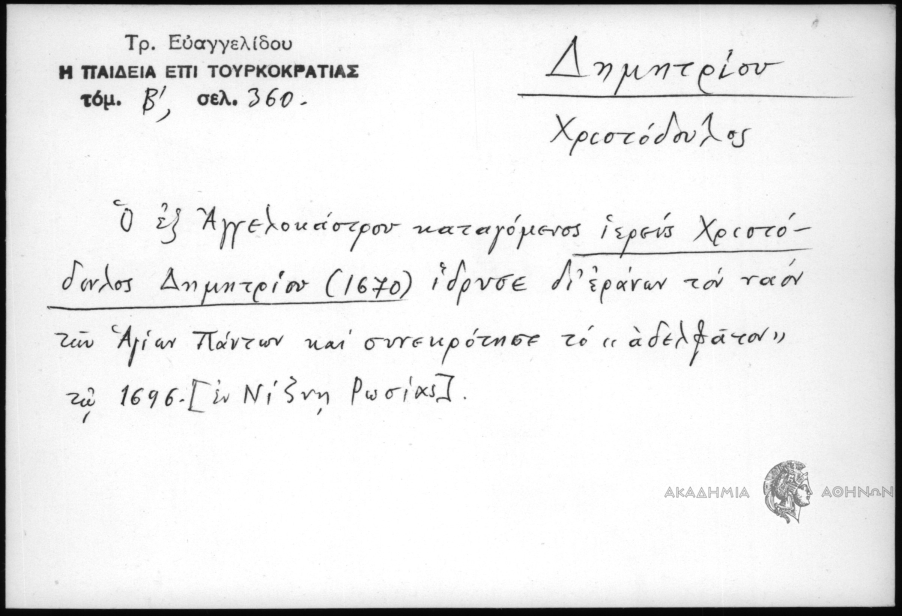 Τρ. Εὐαγγελίδου
Η ΠΑΙΔΕΙΑ ΕΠΙ ΤΟΥΡΚΟΚΡΑΤΙΑΣ
τόμ. Β', σελ. 360.
Δημητρίου
Χριστόδουλος
Ὁ ἐξ Ἀγγελοκάστρου καταγόμενος ἱερεύς Χριστό-
δουλος Δημητρίου (1670) ἵδρυσε δι' ἐράνων τόν ναόν
τῶν Ἁγίων Πάντων καί συνεκρότησε τό «ἀδελφᾶτον»
τῷ 1696.[ἐν Νίζνῃ Ρωσίας].
ΑΚΑΔΗΜΙΑ ΑΘΗΝΩΝ